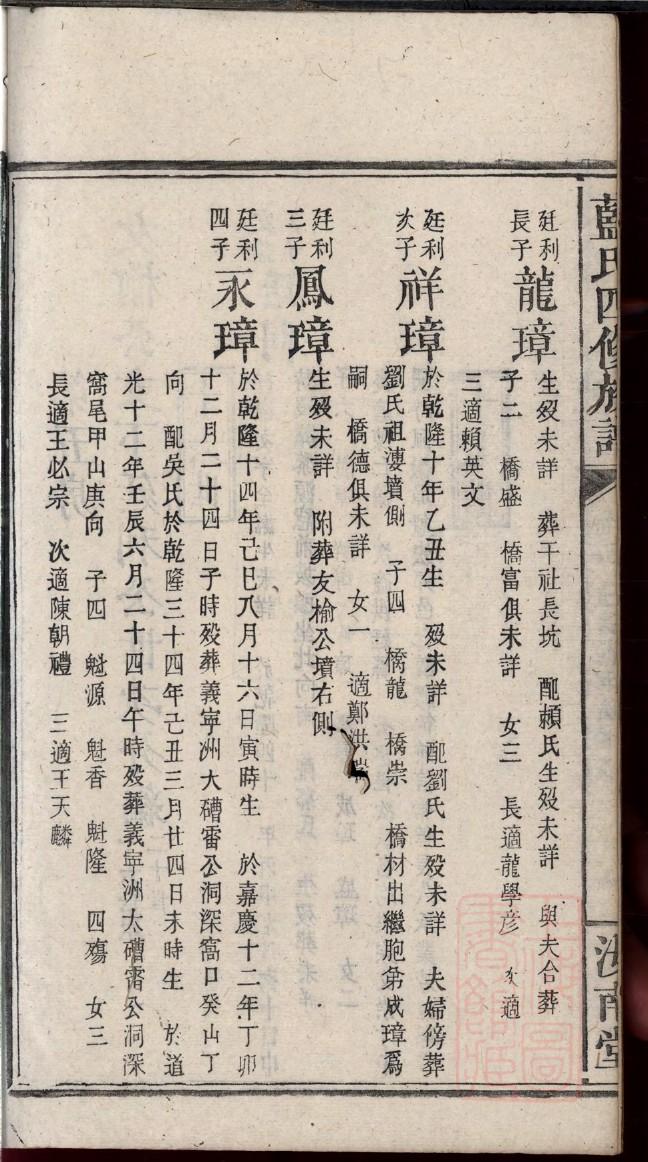 藍氏四修族譜
汝南堂
廷利長子 龍璋 生殁未詳 葬干社長坑 配賴氏生殁未詳 與夫合葬
子二 橋盛 橋富俱未詳 女三 長適龍學彦 次適
三適賴英文
廷利次子 祥璋 於乾隆十年乙丑生 殁未詳 配劉氏生殁未詳 夫婦傍葬
劉氏祖婆墳側 子四 橋龍 橋崇 橋材出繼胞弟成璋為
嗣 橋德俱未詳 女一 適鄭洪
廷利三子 鳳璋 生殁未詳 附葬友榆公墳右側
廷利四子 永璋 於乾隆十四年己巳八月十六日寅時生 於嘉慶十二年丁卯
十二月二十四日子時殁葬義宁洲大𥕢雷公洞深窩口癸山丁
向 配吳氏於乾隆三十四年己丑三月廿四日未時生 於道
光十二年壬辰六月二十四日午時殁葬義宁洲大𥕢雷公洞深
窩尾甲山庚向 子四 魁源 魁香 魁隆 四殤 女三
長適王必宗 次適陳朝禮 三適王天麟